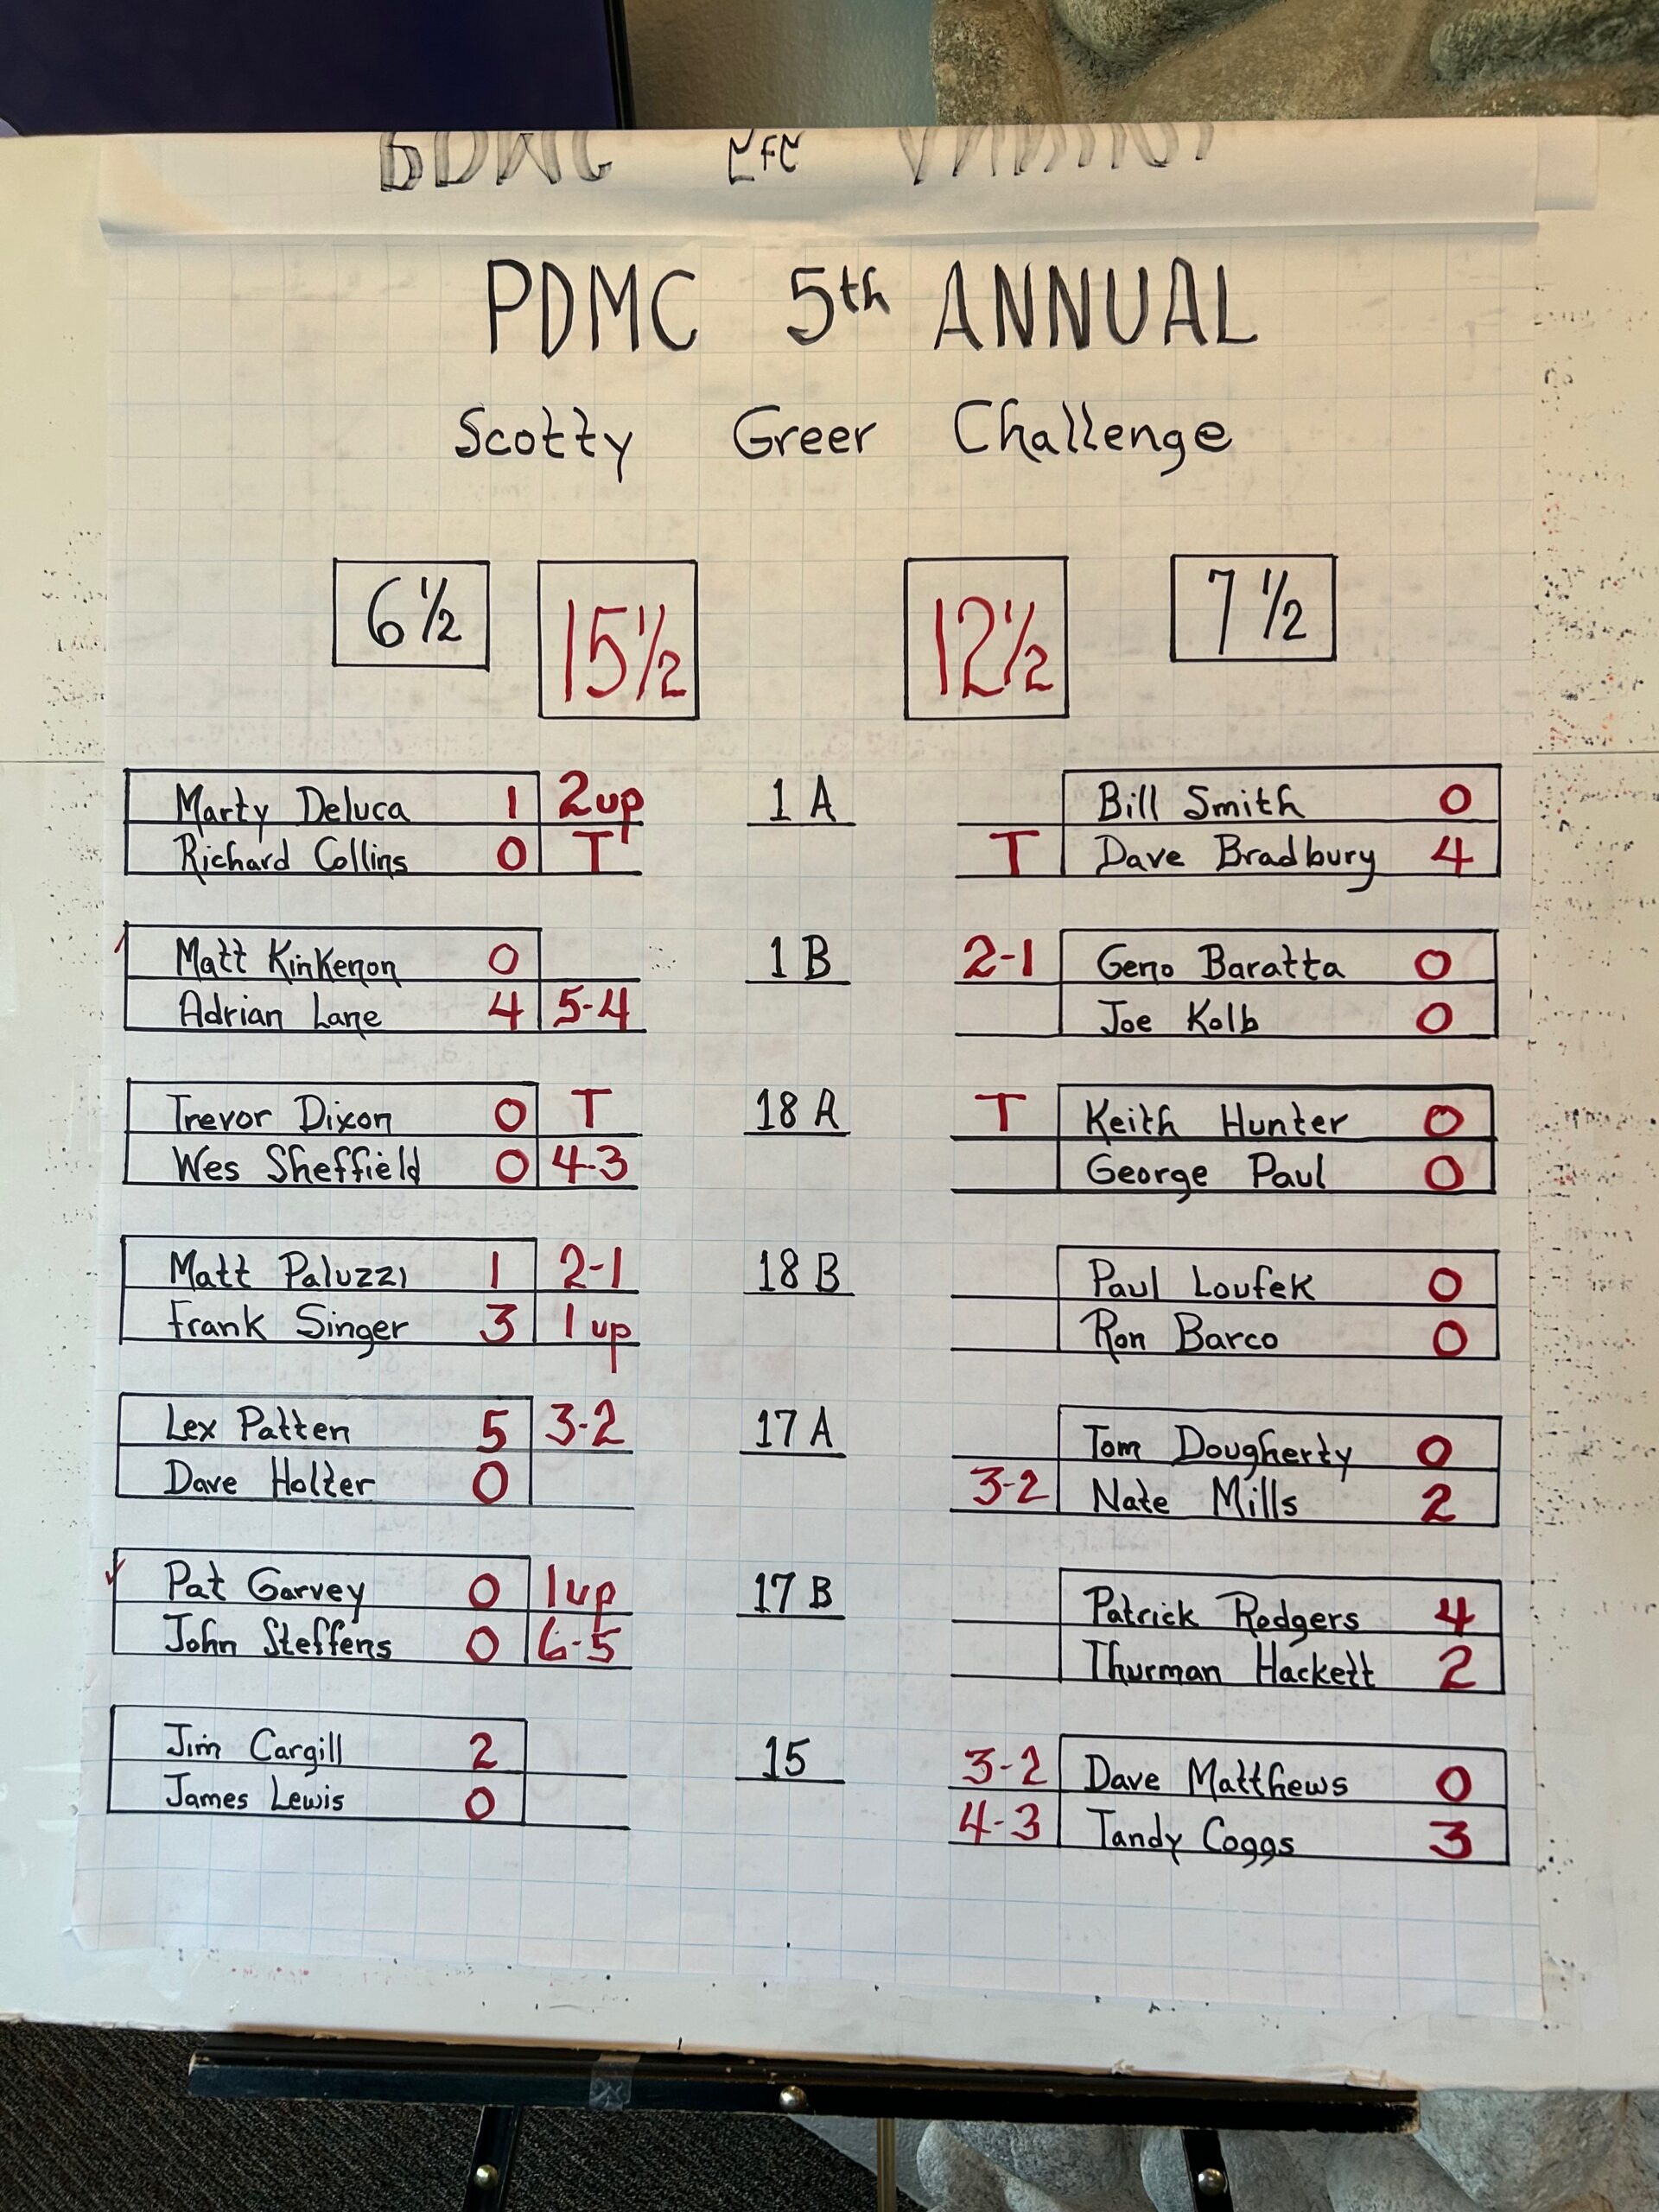 PDMC 5th ANNUAL
Scotty Greer Challenge
6½ 15½ 12½ 7½
Marty Deluca 1 2up 1A Bill Smith 0
Richard Collins 0 T T Dave Bradbury 4
Matt Kinkenon 0 1B 2-1 Geno Baratta 0
Adrian Lane 4 5-4 Joe Kolb 0
Trevor Dixon 0 T 18A T Keith Hunter 0
Wes Sheffield 0 4-3 George Paul 0
Matt Paluzzi 1 2-1 18B Paul Loufek 0
Frank Singer 3 1up Ron Barco 0
Lex Patten 5 3-2 17A Tom Dougherty 0
Dave Holter 0 3-2 Nate Mills 2
Pat Garvey 0 1up 17B Patrick Rodgers 4
John Steffens 0 6-5 Thurman Hackett 2
Jim Cargill 2 15 3-2 Dave Matthews 0
James Lewis 0 4-3 Tandy Coggs 3